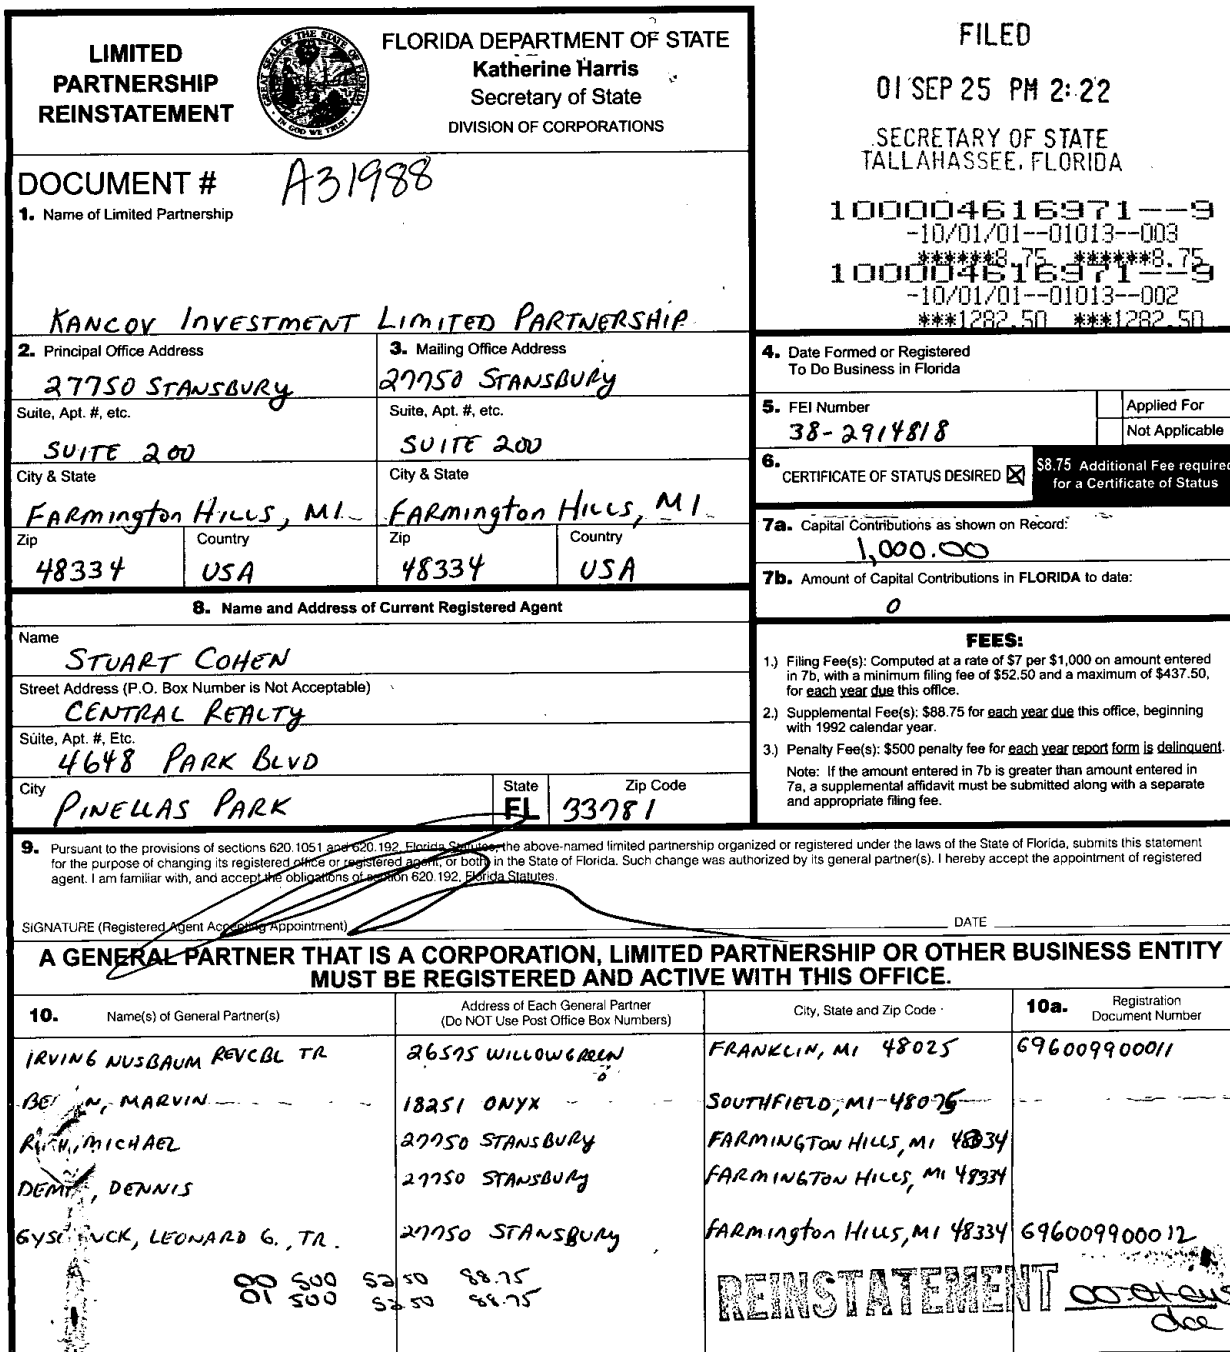 LIMITED
PARTNERSHIP
REINSTATEMENT
GREAT SEAL OF THE STATE OF FLORIDA
IN GOD WE TRUST
FLORIDA DEPARTMENT OF STATE
Katherine Harris
Secretary of State
DIVISION OF CORPORATIONS
FILED
01 SEP 25 PM 2:22
SECRETARY OF STATE
TALLAHASSEE, FLORIDA
DOCUMENT # A31988
1. Name of Limited Partnership
100004616971--9
-10/01/01--01013--003
******8.75 ******8.75
100004616971--9
-10/01/01--01013--002
***1282.50 ***1282.50
KANCOV INVESTMENT LIMITED PARTNERSHIP
2. Principal Office Address
27750 STANSBURY
3. Mailing Office Address
27750 STANSBURY
Suite, Apt. #, etc.
SUITE 200
Suite, Apt. #, etc.
SUITE 200
City & State
FARMINGTON HILLS, MI
City & State
FARMINGTON HILLS, MI
Zip
48334
Country
USA
Zip
48334
Country
USA
4. Date Formed or Registered
To Do Business in Florida
5. FEI Number
38-2914818
Applied For
Not Applicable
6. CERTIFICATE OF STATUS DESIRED ☒
$8.75 Additional Fee required
for a Certificate of Status
7a. Capital Contributions as shown on Record:
1,000.00
7b. Amount of Capital Contributions in FLORIDA to date:
0
8. Name and Address of Current Registered Agent
Name
STUART COHEN
Street Address (P.O. Box Number is Not Acceptable)
CENTRAL REALTY
Suite, Apt. #, Etc.
4648 PARK BLVD
City
PINELLAS PARK
State
FL
Zip Code
33781
FEES:
1.) Filing Fee(s): Computed at a rate of $7 per $1,000 on amount entered
in 7b, with a minimum filing fee of $52.50 and a maximum of $437.50,
for each year due this office.
2.) Supplemental Fee(s): $88.75 for each year due this office, beginning
with 1992 calendar year.
3.) Penalty Fee(s): $500 penalty fee for each year report form is delinquent.
Note: If the amount entered in 7b is greater than amount entered in
7a, a supplemental affidavit must be submitted along with a separate
and appropriate filing fee.
9. Pursuant to the provisions of sections 620.1051 and 620.192, Florida Statutes, the above-named limited partnership organized or registered under the laws of the State of Florida, submits this statement
for the purpose of changing its registered office or registered agent, or both, in the State of Florida. Such change was authorized by its general partner(s). I hereby accept the appointment of registered
agent. I am familiar with, and accept the obligations of section 620.192, Florida Statutes.
SIGNATURE (Registered Agent Accepting Appointment)
DATE
A GENERAL PARTNER THAT IS A CORPORATION, LIMITED PARTNERSHIP OR OTHER BUSINESS ENTITY
MUST BE REGISTERED AND ACTIVE WITH THIS OFFICE.
10. Name(s) of General Partner(s)
Address of Each General Partner
(Do NOT Use Post Office Box Numbers)
City, State and Zip Code
10a. Registration
Document Number
IRVING NUSBAUM REVCBL TR 26575 WILLOWGREEN FRANKLIN, MI 48025 696009900011
MARVIN 18251 ONYX SOUTHFIELD, MI 48075
MICHAEL 27750 STANSBURY FARMINGTON HILLS, MI 48334
DENNIS 27750 STANSBURY FARMINGTON HILLS, MI 48334
LEONARD G., TR. 27750 STANSBURY FARMINGTON HILLS, MI 48334 696009900012
00 500 52.50 88.75
01 500 52.50 88.75
REINSTATEMENT